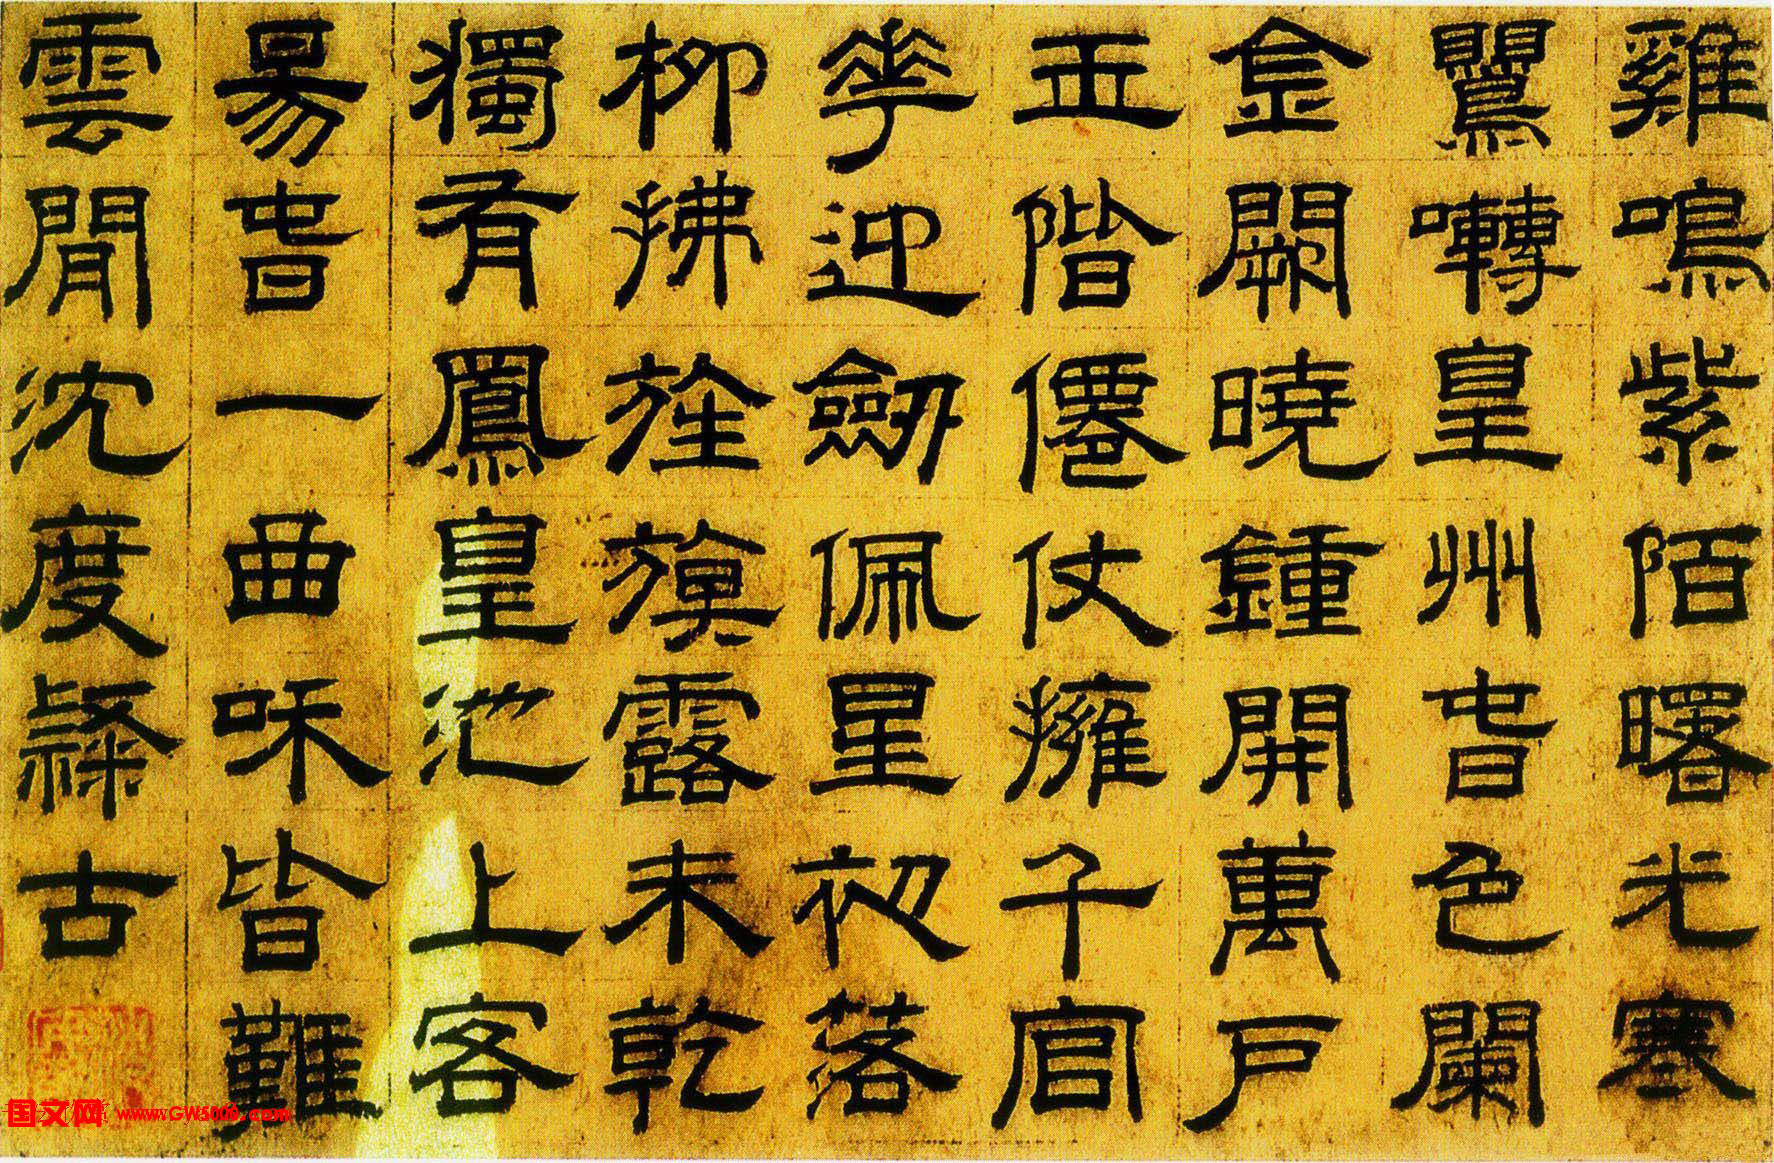 雞鳴紫陌曙光寒
鸎囀皇州旾色闌
金闕曉鍾開萬戶
玉階僊仗擁千官
華迎劒佩星初落
柳拂旌旗露未乾
獨有鳳皇池上客
昜旾一曲咊皆難
雲閒沈度隸古
国文网 www.GW5000.com